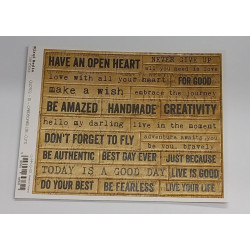 HAVE AN OPEN HEART
NEVER GIVE UP
all you need is love
love with all your heart
FOR GOOD
make a wish
embrace the journey
BE AMAZED
HANDMADE
CREATIVITY
hello my darling
live in the moment
DON'T FORGET TO FLY
adventure awaits you
be you, bravely
BE AUTHENTIC
BEST DAY EVER
JUST BECAUSE
TODAY IS A GOOD DAY
LIFE IS GOOD
DO YOUR BEST
BE FEARLESS
LIVE YOUR LIFE